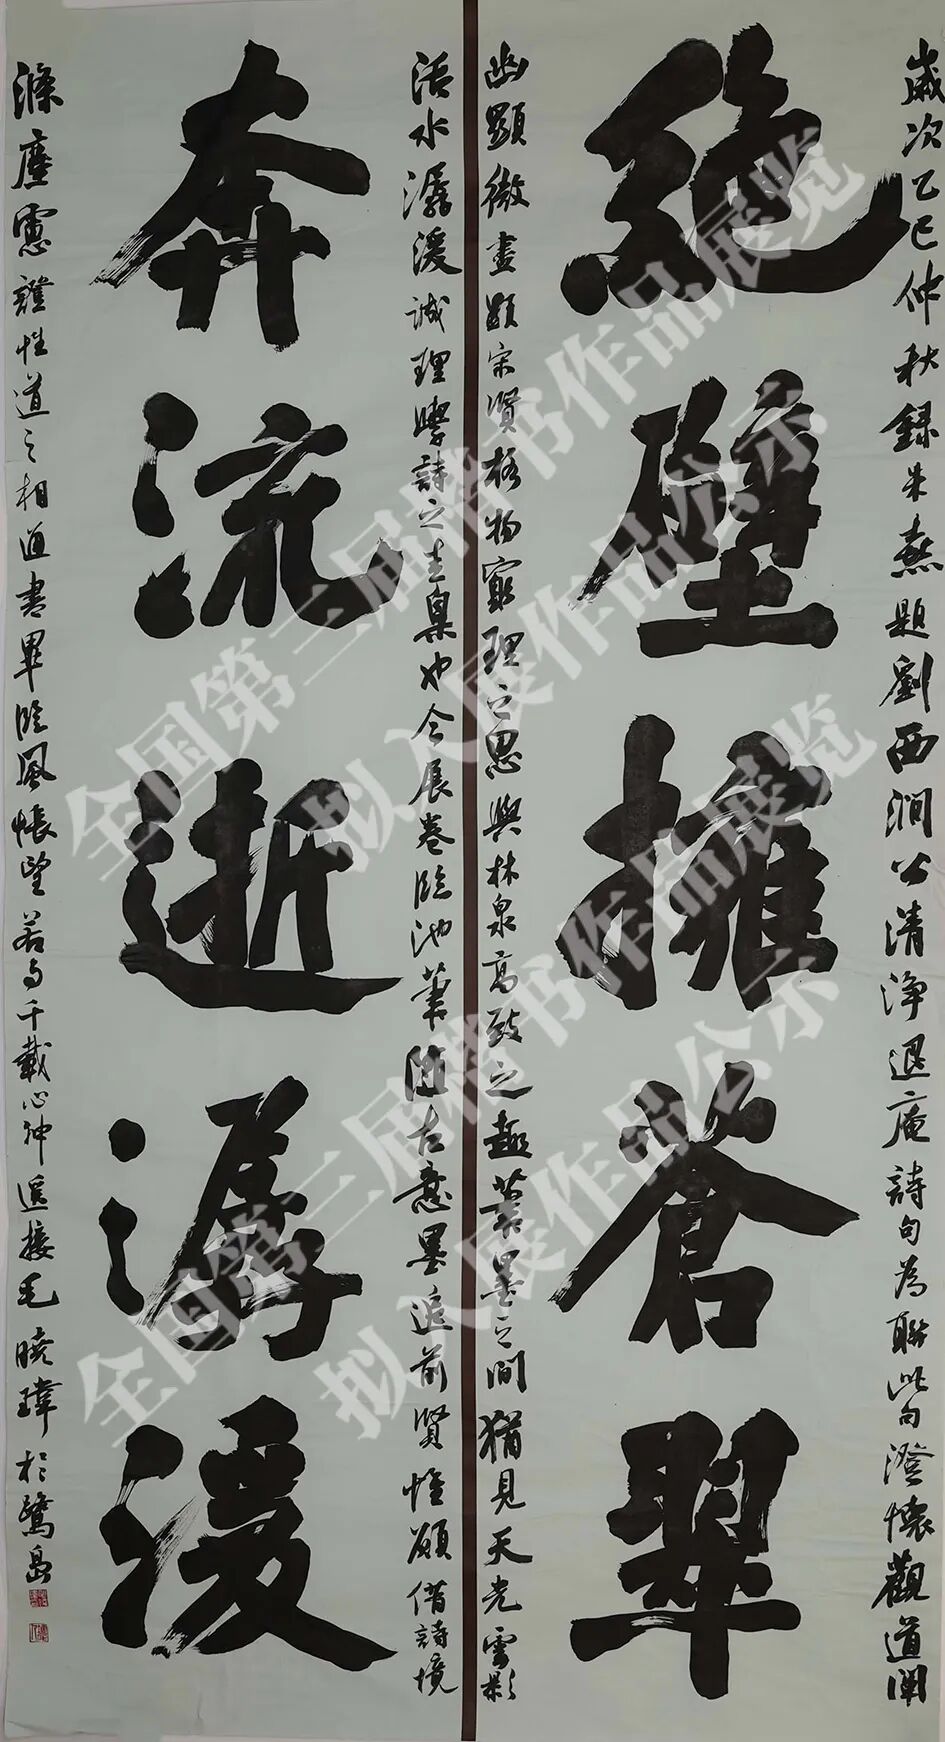 歲次乙巳仲秋錄朱熹題劉西澗公清淨退庵詩句為聯此句澄懷觀道闡
絶壁擁蒼翠
幽顯微畫顯宋賢格物窮理之思與林泉高致之趣叢墨之間猶見天光雲影
活水潺湲誠理學詩之圭臬也今展卷臨池筆随古意墨追前賢惟願借詩境
奔流逝潺湲
滌塵慮證性道之相通書畢臨風悵望若與千載心神遥接毛曉瑋於鷺島
全国第三届楷书作品展览
拟入展作品公示
全国第三届楷书作品展览
拟入展作品公示